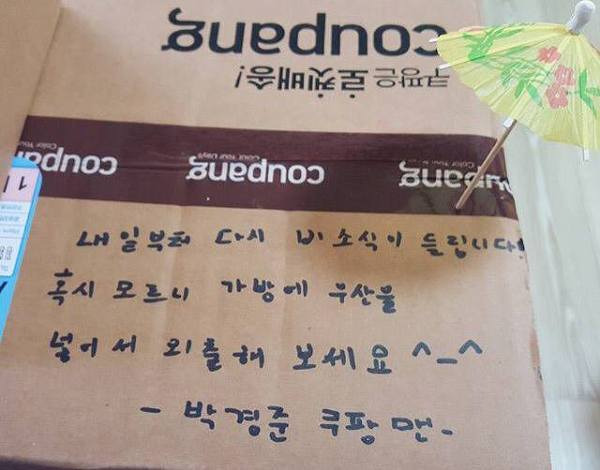 coupang
쿠팡은 로켓배송!
coupang
coupang
Color Your Days
coupang
내일부터 다시 비 소식이 들립니다!
혹시 모르니 가방에 우산을
넣어서 외출해 보세요 ^_^
- 박경준 쿠팡맨.